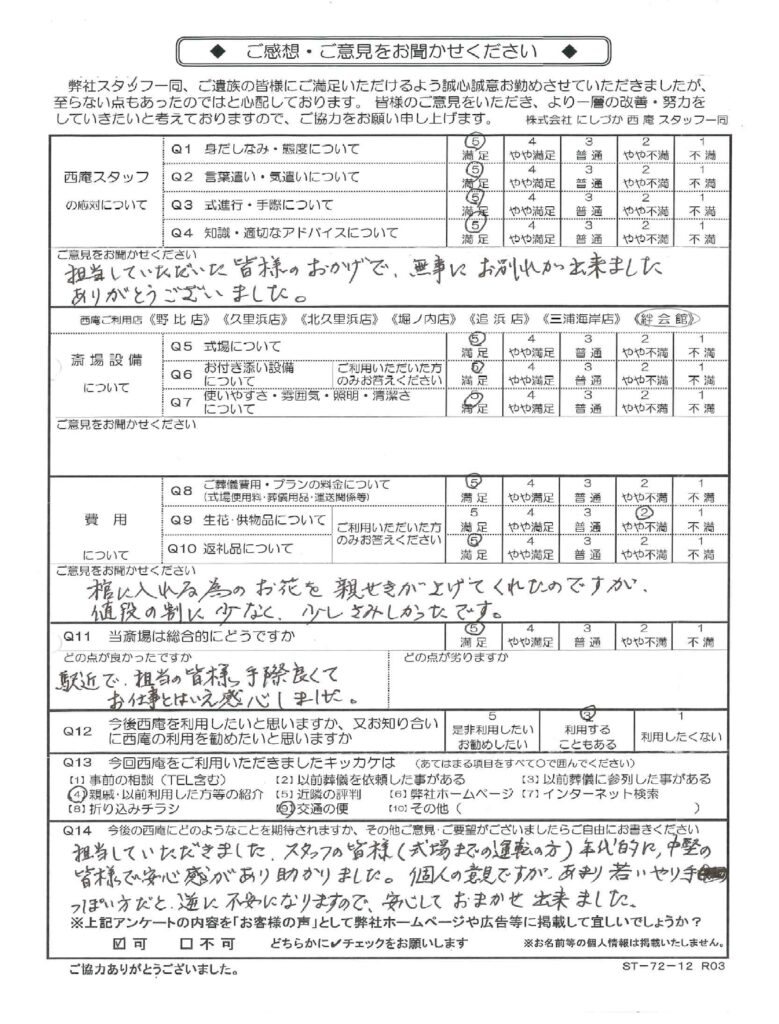 ◆ ご感想・ご意見をお聞かせください ◆
弊社スタッフ一同、ご遺族の皆様にご満足いただけるよう誠心誠意お勤めさせていただきましたが、
至らない点もあったのではと心配しております。 皆様のご意見をいただき、より一層の改善・努力を
していきたいと考えておりますので、ご協力をお願い申し上げます。 株式会社 にしづか 西庵 スタッフ一同
西庵スタッフ
の応対について
Q1 身だしなみ・態度について 5 満足 4 やや満足 3 普通 2 やや不満 1 不満
Q2 言葉遣い・気遣いについて 5 満足 4 やや満足 3 普通 2 やや不満 1 不満
Q3 式進行・手際について 5 満足 4 やや満足 3 普通 2 やや不満 1 不満
Q4 知識・適切なアドバイスについて 5 満足 4 やや満足 3 普通 2 やや不満 1 不満
ご意見をお聞かせください
担当していただいた皆様のおかげで、無事にお別れが出来ました
ありがとうございました。
西庵ご利用店《野比店》《久里浜店》《北久里浜店》《堀ノ内店》《追浜店》《三浦海岸店》《絆会館》
斎場設備
について
Q5 式場について 5 満足 4 やや満足 3 普通 2 やや不満 1 不満
Q6 お付き添い設備について ご利用いただいた方のみお答えください 5 満足 4 やや満足 3 普通 2 やや不満 1 不満
Q7 使いやすさ・雰囲気・照明・清潔さについて 5 満足 4 やや満足 3 普通 2 やや不満 1 不満
ご意見をお聞かせください
費用
について
Q8 ご葬儀費用・プランの料金について (式場使用料・葬儀用品・運送関係等) 5 満足 4 やや満足 3 普通 2 やや不満 1 不満
Q9 生花・供物品について ご利用いただいた方のみお答えください 5 満足 4 やや満足 3 普通 2 やや不満 1 不満
Q10 返礼品について 5 満足 4 やや満足 3 普通 2 やや不満 1 不満
ご意見をお聞かせください
棺に入れる為のお花を親せきが上げてくれたのですが、
値段の割に少なく、少しさみしかったです。
Q11 当斎場は総合的にどうですか 5 満足 4 やや満足 3 普通 2 やや不満 1 不満
どの点が良かったですか
駅近で、担当の皆様、手際良くて
お仕事とはいえ感心しました。
どの点が劣りますか
Q12 今後西庵を利用したいと思いますか、又お知り合い
に西庵の利用を勧めたいと思いますか
5 是非利用したいお勧めしたい 3 利用することもある 1 利用したくない
Q13 今回西庵をご利用いただきましたキッカケは (あてはまる項目をすべて○で囲んでください)
[1] 事前の相談(TEL含む) [2] 以前葬儀を依頼した事がある [3] 以前葬儀に参列した事がある
④親戚・以前利用した方等の紹介 [5] 近隣の評判 [6] 弊社ホームページ [7] インターネット検索
[8] 折り込みチラシ ⑨交通の便 [10] その他( )
Q14 今後の西庵にどのようなことを期待されますか、その他ご意見・ご要望がございましたらご自由にお書きください
担当していただきました、スタッフの皆様(式場までの運転の方)年代的に、中堅の
皆様で安心感があり助かりました。個人の意見ですが、あまり若いやり手
っぽい方だと、逆に不安になりますので、安心しておまかせ出来ました。
※上記アンケートの内容を「お客様の声」として弊社ホームページや広告等に掲載して宜しいでしょうか?
☑可 □不可 どちらかに✓チェックをお願いします ※お名前等の個人情報は掲載いたしません。
ご協力ありがとうございました。 ST-72-12 R03